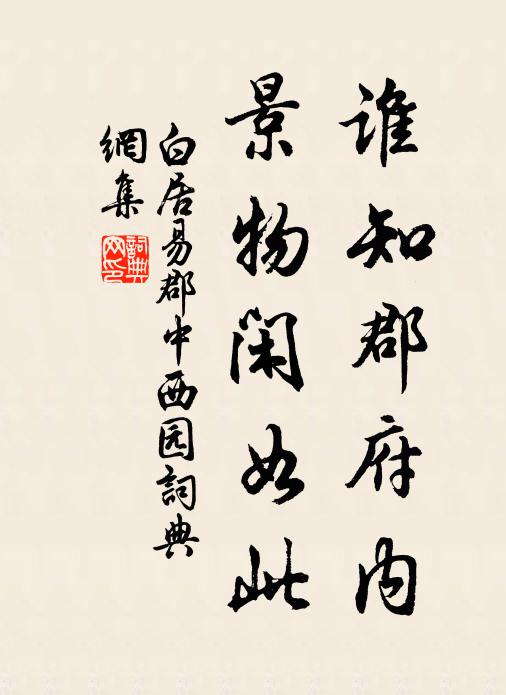 谁知郡府内
景物闲如此
白居易郡中西园詞典
網集
詞典网印